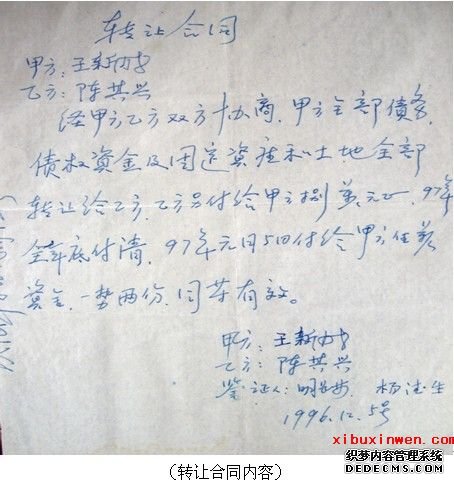 转让合同
甲方：王新
乙方：陈其兴
经甲方乙方双方协商，甲方全部债务，
债权资金及固定资产和土地全部
转让给乙方，乙方另付给甲方捌万元正，97年
全年底付清，97年元月5日付给甲方伍万
资金，一势两份，同等有效。
甲方：王新
乙方：陈其兴
鉴证人：明 杨 生
1996.12.5号
xibuxinwen.com
织梦内容管理系统
DEDECMS.COM
（转让合同内容）